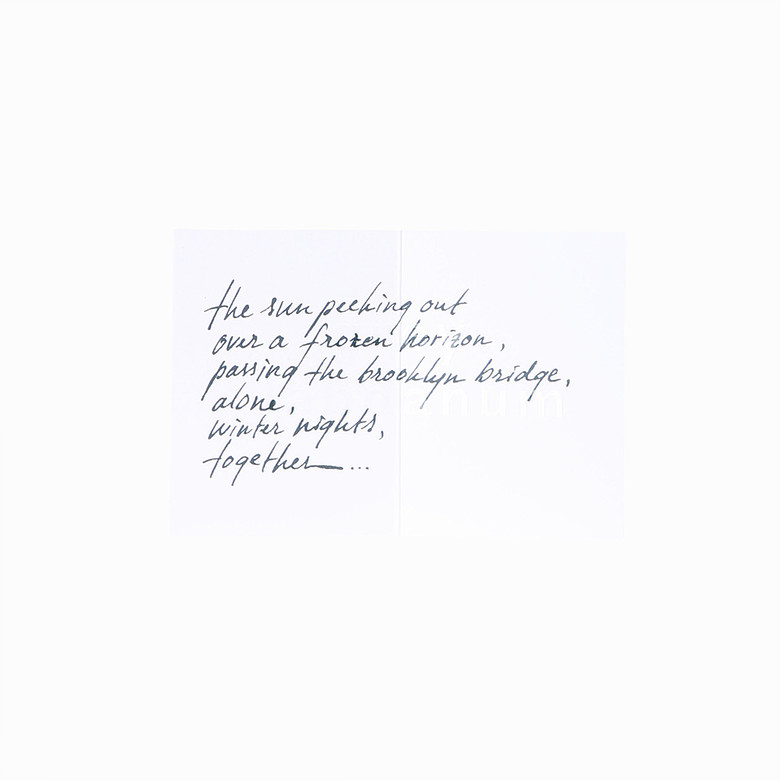 the sun peeking out
over a frozen horizon,
passing the brooklyn bridge,
alone,
winter nights,
together...